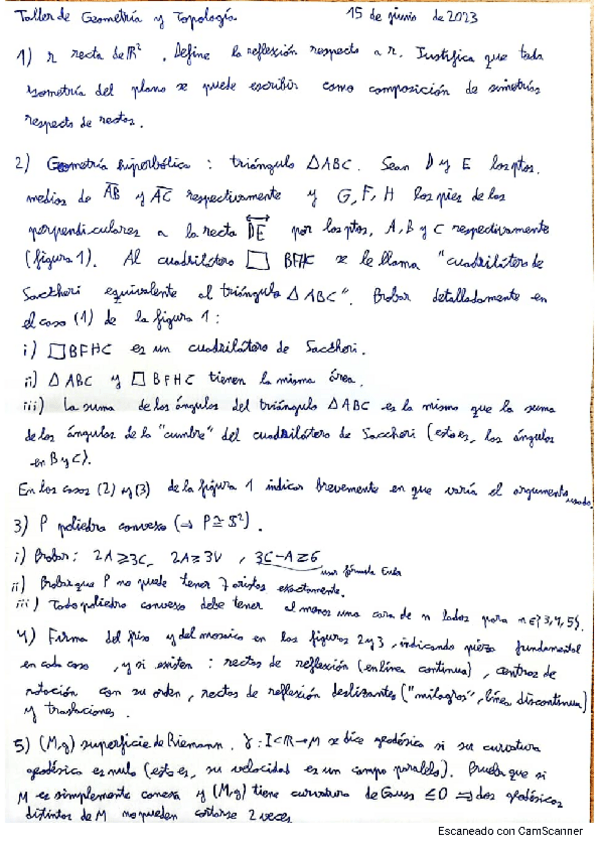 Taller de Geometría y Topología 15 de junio de 2023
1) r recta de ℝ². Define la reflexión respecto a r. Justifica que toda
isometría del plano se puede escribir como composición de simetrías
respecto de rectas.
2) Geometría hiperbólica : triángulo △ABC. Sean D y E los ptos.
medios de AB y AC respectivamente y G, F, H los pies de los
perpendiculares a la recta DE por los ptos. A, B y C respectivamente
(figura 1). Al cuadrilátero □ BFHC se le llama "cuadrilátero de
Saccheri equivalente al triángulo △ABC". Probar detalladamente en
el caso (1) de la figura 1 :
i) □BFHC es un cuadrilátero de Saccheri.
ii) △ ABC y □ BFHC tienen la misma área.
iii) La suma de los ángulos del triángulo △ABC es la misma que la suma
de los ángulos de la "cumbre" del cuadrilátero de Saccheri (esto es, los ángulos
en B y C).
En los casos (2) y (3) de la figura 1 indicar brevemente en que varía el argumento usado.
3) P poliedro convexo (→ P≅S²).
i) Probar: 2A≥3C, 2A≥3V, 3C-A≥6
usar fórmula Euler
ii) Probar que P no puede tener 7 aristas exactamente.
iii) Todo poliedro convexo debe tener al menos una cara de n lados para n∈{3,4,5}.
4) Firma del friso y del mosaico en las figuras 2 y 3, indicando pieza fundamental
en cada caso, y si existen : rectas de reflexión (en línea continua), centros de
rotación con su orden, rectas de reflexión deslizantes ("milagros", línea discontinua)
y traslaciones.
5) (M,g) superficie de Riemann. γ: I⊂ℝ→M se dice geodésica si su curvatura
geodésica es nula (esto es, su velocidad es un campo paralelo). Prueba que si
M es simplemente conexa y (M,g) tiene curvatura de Gauss ≤0 ⟹ dos geodésicas
distintas de M no pueden cortarse 2 veces
Escaneado con CamScanner